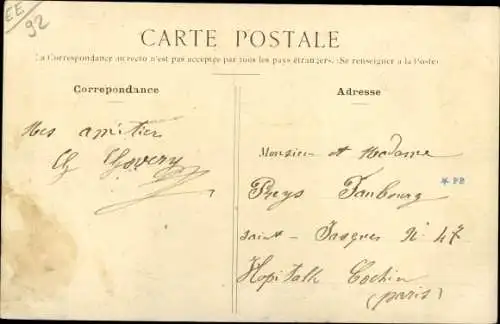 EE
92
CARTE POSTALE
La Correspondance au recto n'est pas acceptée par tous les pays étrangers. (Se renseigner à la Poste)
Correpondance
Adresse
Mes amitier
Monsieur et Madame
Preys Faubourg
* PP
saint - Jasques N° 47
Hopitalle Cochin
(paris)